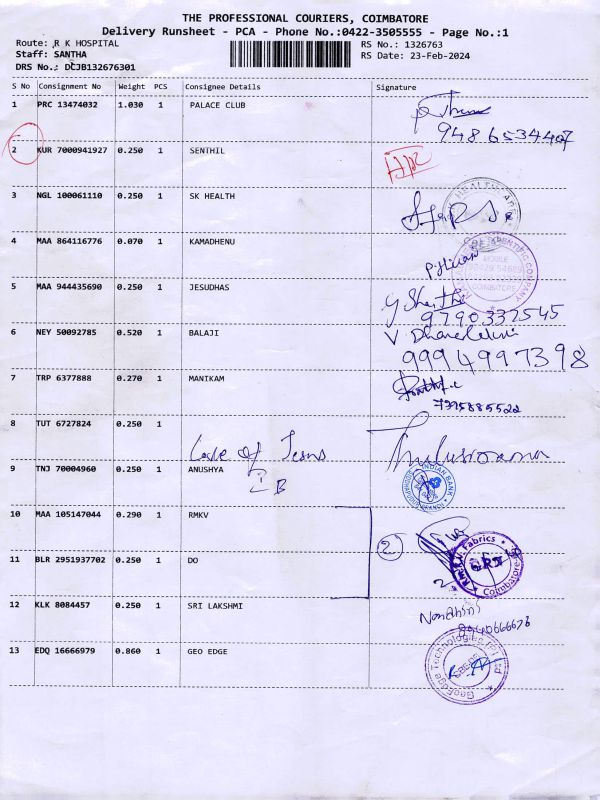 THE PROFESSIONAL COURIERS, COIMBATORE
Delivery Runsheet - PCA - Phone No.:0422-3505555 - Page No.:1
Route: R K HOSPITAL
RS No.: 1326763
Staff: SANTHA
RS Date: 23-Feb-2024
DRS No.: DCJB132676301
S No Consignment No Weight PCS Consignee Details Signature
1 PRC 13474032 1.030 1 PALACE CLUB
9486534407
2 KUR 7000941927 0.250 1 SENTHIL
3 NGL 100061110 0.250 1 SK HEALTH
HEALTH CARE
4 MAA 864116776 0.070 1 KAMADHENU
SCIENTIFIC COMPANY
MOBILE
COIMBATORE
5 MAA 944435690 0.250 1 JESUDHAS
9790332545
6 NEY 50092785 0.520 1 BALAJI
9994997398
7 TRP 6377888 0.270 1 MANIKAM
7395885522
8 TUT 6727824 0.250 1
Love of Jesus
9 TNJ 70004960 0.250 1 ANUSHYA
I B
INDIAN BANK
10 MAA 105147044 0.290 1 RMKV
2
11 BLR 2951937702 0.250 1 DO
Fabrics
Coimbatore
12 KLK 8084457 0.250 1 SRI LAKSHMI
13 EDQ 16666979 0.860 1 GEO EDGE
GeoEdge Technologies (P) Ltd